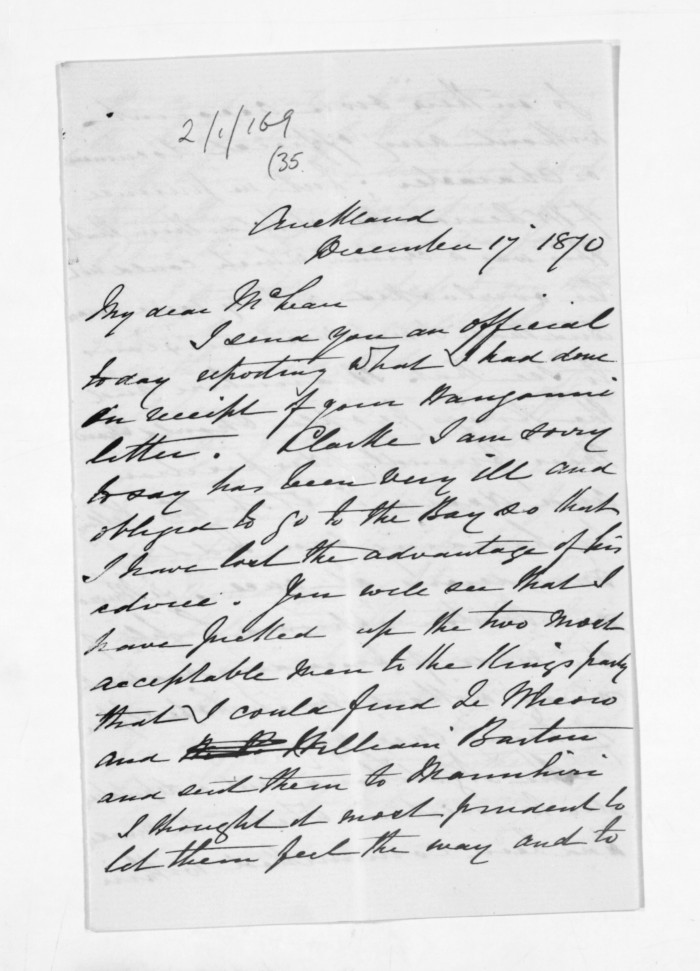 2/1/169
(35
Auckland
December 17 1870
My dear McLean
I send you an official
today reporting what I had done
on receipt of your
letter. Clarke I am sorry
to say has been very ill and
obliged to go to the Bay so that
I have lost the advantage of his
advice. You will see that I
have picked up the two most
acceptable men to the Kings party
that I could find Te Wheoro
and William Barton
and sent them to Manuhiri
I thought it most prudent to
let them feel the way and to